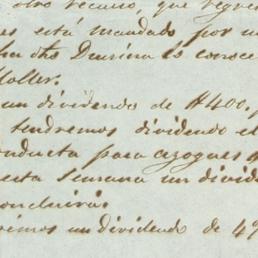 otro recurso, que regre
es está mandado por u
ha dha Demina lo conoce
Haller.
un dividendo de $400,
tendremos dividendo el
onducta para azogues
esta semana un divid
concluirá
remos un dividendo de 49